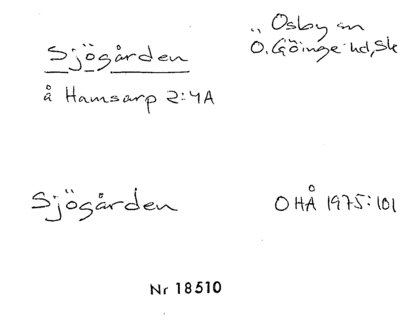 Sjögården
Osby sn
Ö. Göinge hd, Sk
å Hamsarp 2:4A
Sjögården
OHÅ 1975:101
Nr 18510